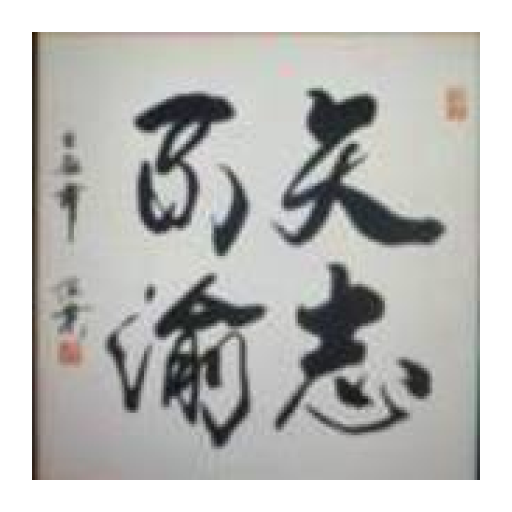 矢志
不渝